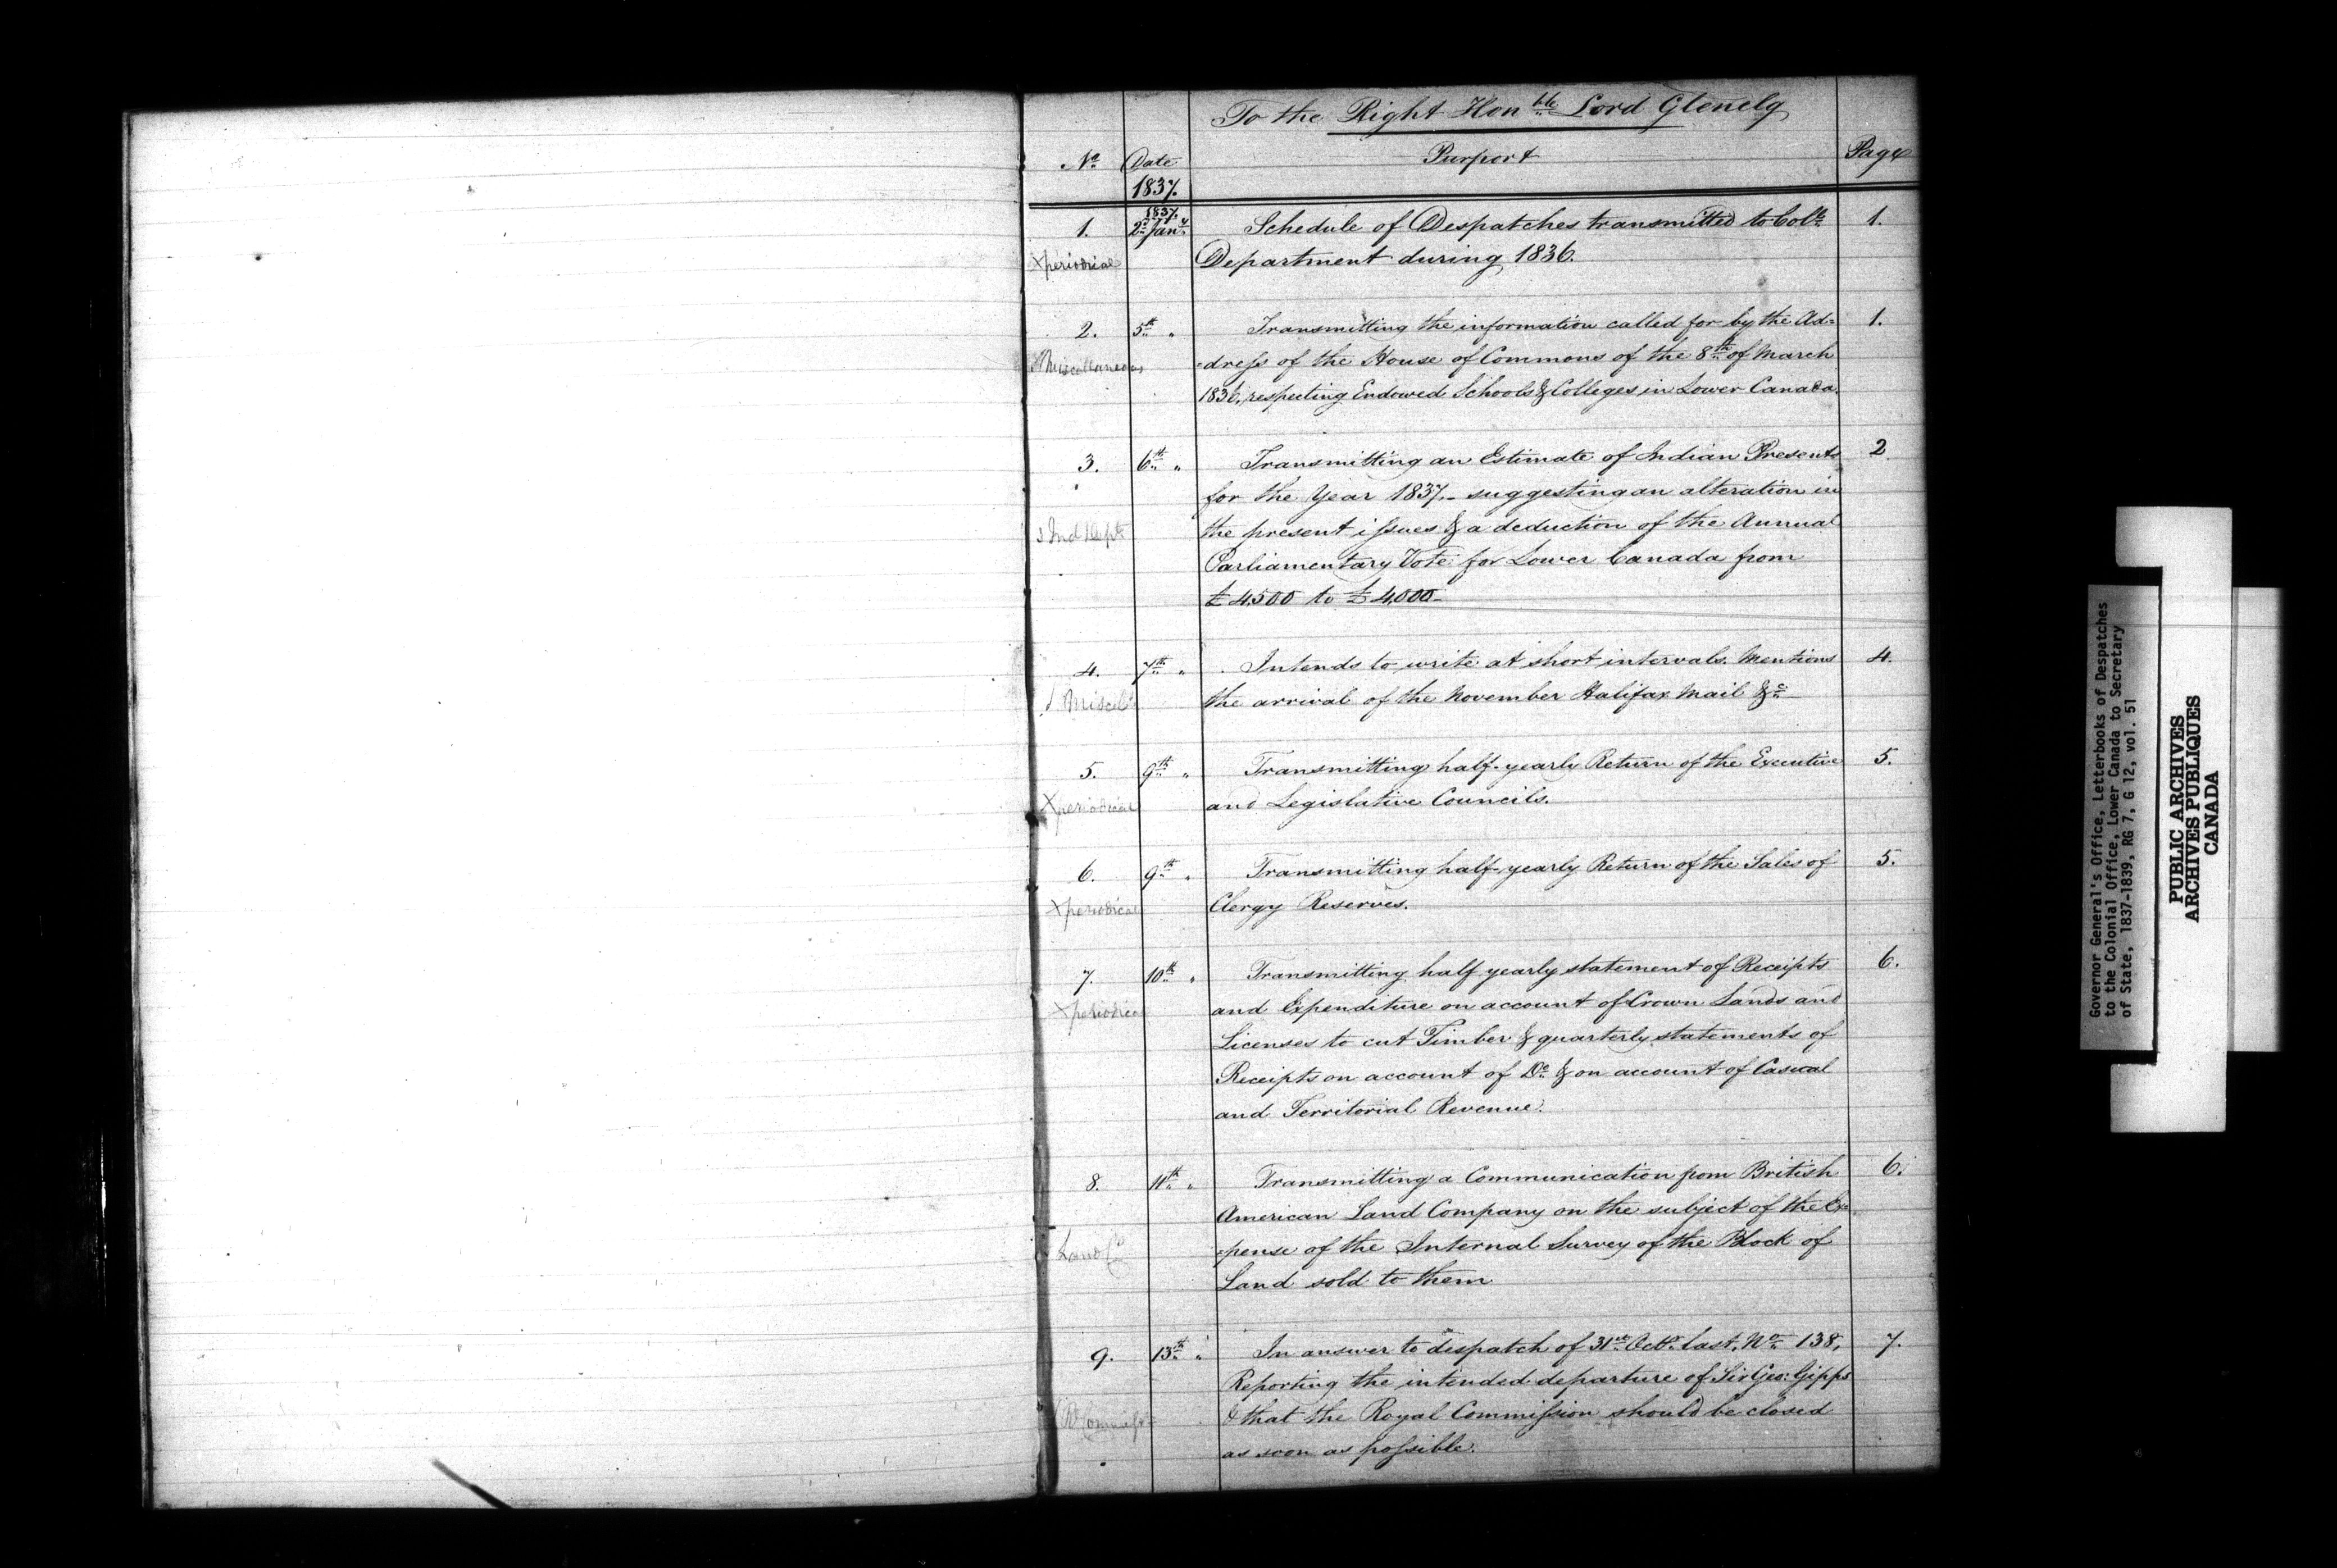 To the Right Honble Lord Glenelg
No. Date Purport Page
1837.
1. 1837. 2d Jany Schedule of Despatches transmitted to Coll. 1.
X periodical Department during 1836.
2. 5th " Transmitting the information called for by the Ad= 1.
Miscellaneous =dress of the House of Commons of the 8th of March
1836, respecting Endowed Schools & Colleges in Lower Canada.
3. 6th " Transmitting an Estimate of Indian Presents 2
for the Year 1837,- suggesting an alteration in
Ind Dept the present issues & a deduction of the Annual
Parliamentary Vote for Lower Canada from
£4,500 to £4,000-
4. 7th " Intends to write at short intervals. Mentions 4.
Miscels the arrival of the November Halifax Mail &c
5. 9th " Transmitting half-yearly Return of the Executive 5.
X periodical and Legislative Councils.
6. 9th " Transmitting half-yearly Return of the Sales of 5.
X periodical Clergy Reserves.
7. 10th " Transmitting half yearly statement of Receipts 6.
X periodical and Expenditure on account of Crown Lands and
Licenses to cut Timber & quarterly statements of
Receipts on account of Do & on account of Casual
and Territorial Revenue.
8. 11th " Transmitting a Communication from British 6.
American Land Company on the subject of the Ex=
Land Co =pense of the Internal Survey of the Block of
Land sold to them
9. 13th " In answer to despatch of 31st Octr. last, No. 138, 7.
Reporting the intended departure of Sir Geo: Gipps
& that the Royal Commission should be closed
as soon as possible.
Governor General's Office, Letterbooks of Despatches
to the Colonial Office, Lower Canada to Secretary
of State, 1837-1839, RG 7, G 12, vol. 51
PUBLIC ARCHIVES
ARCHIVES PUBLIQUES
CANADA